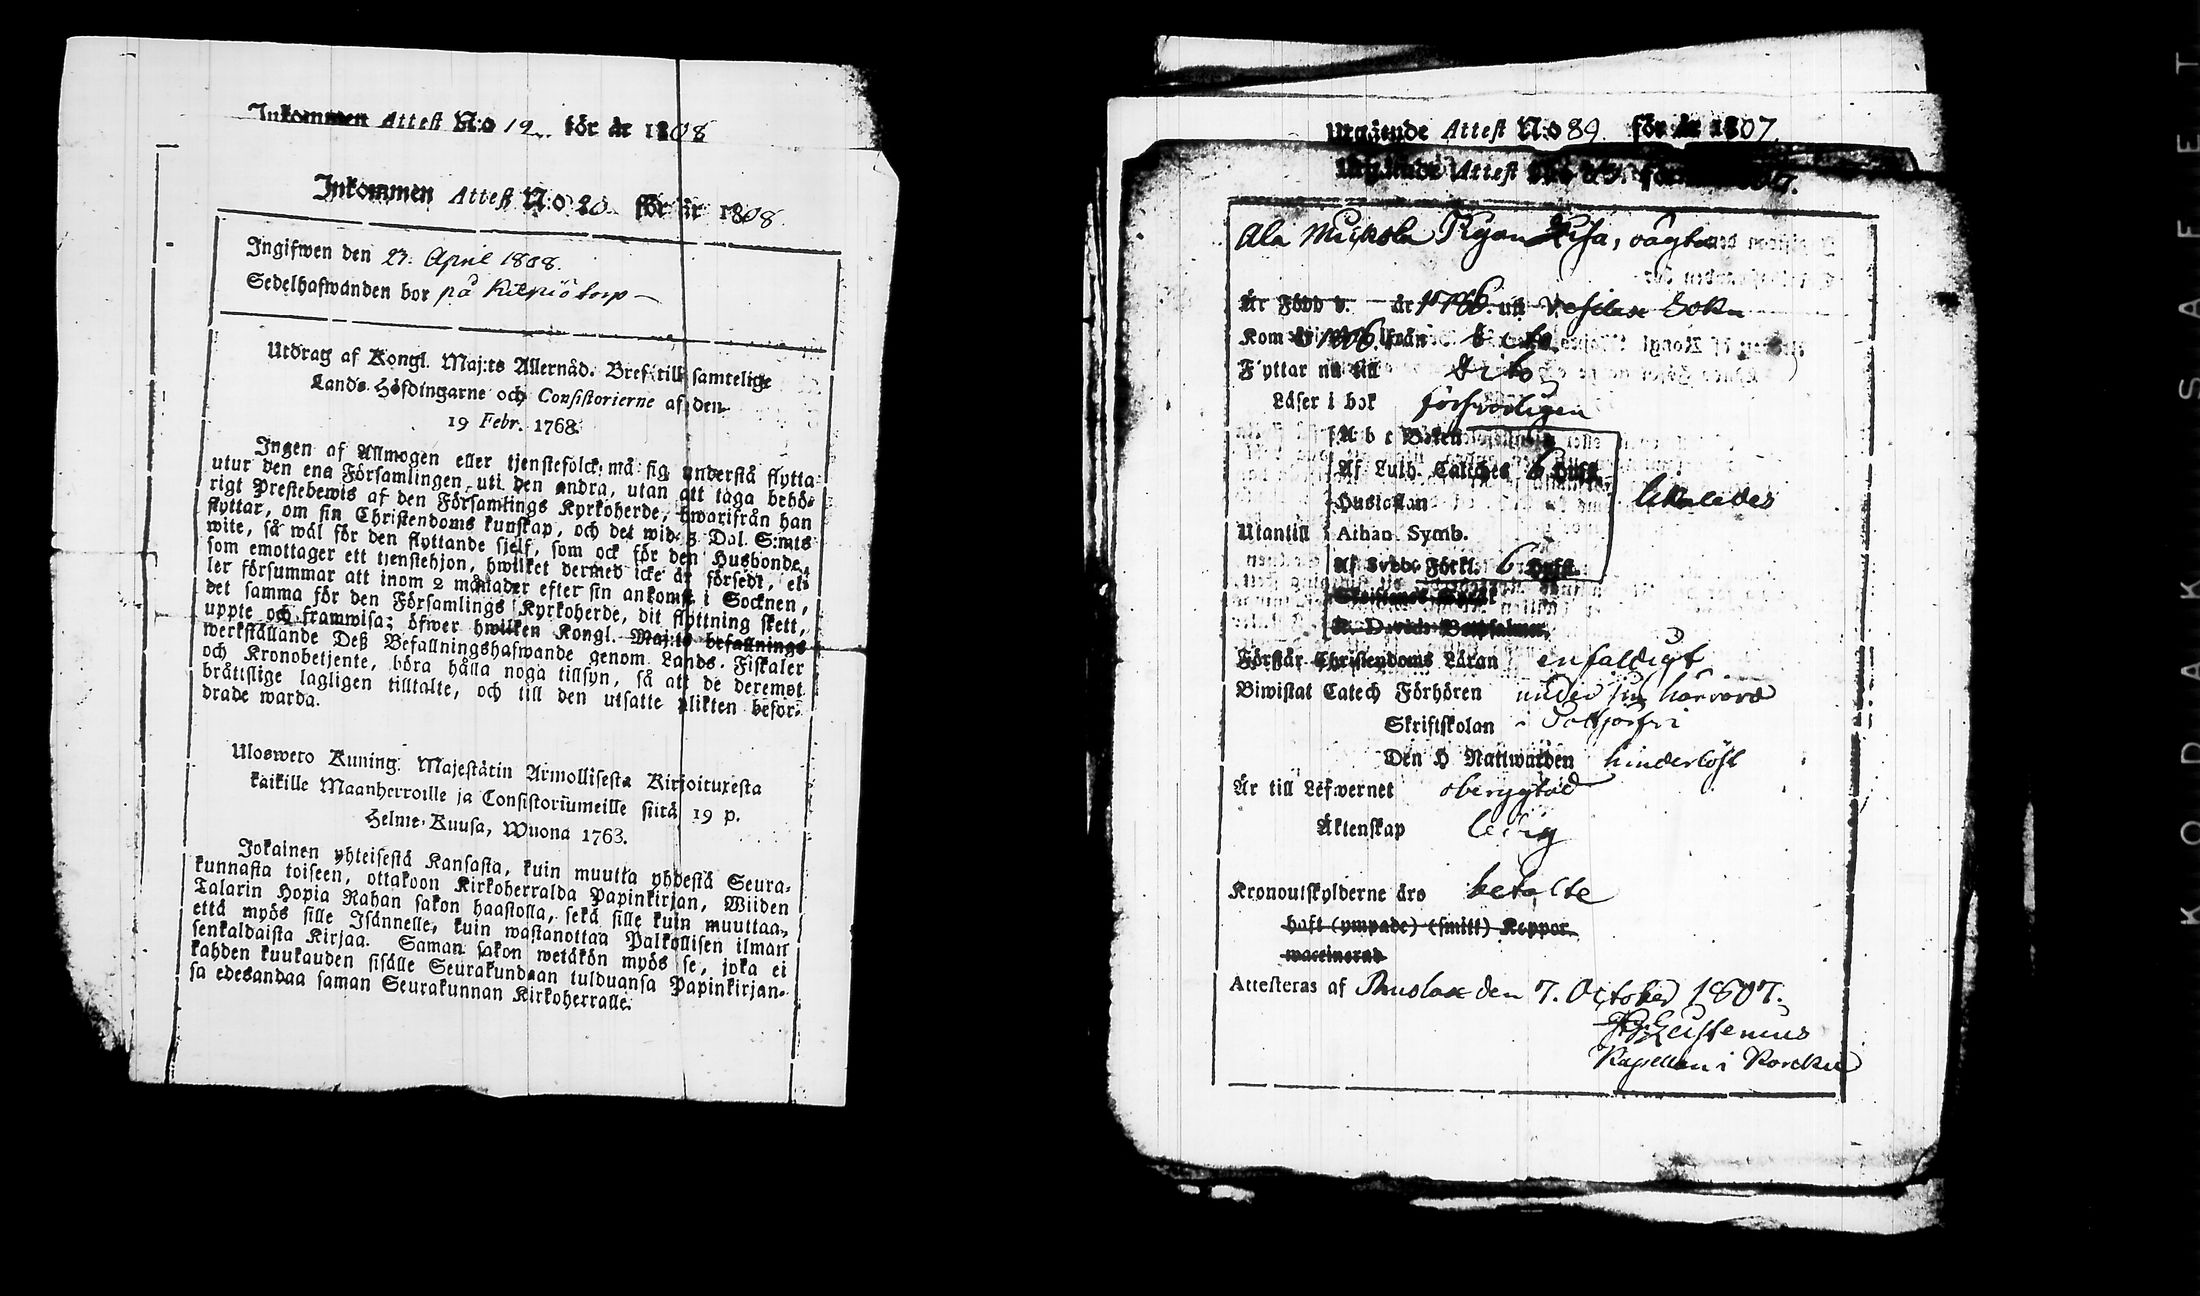 Inkommen Attest N:o 19. för år 1808
Inkommen Attest N:o 20. för år 1808.
Ingifwen den 23. April 1808.
Sedelhafwanden bor på torp
Utdrag af Kongl. Maj:ts Allernåd. Bref till samtelige
Lands-Höfdingarne och Consistorierne af den
19 Febr. 1768.
Ingen af Allmogen eller tjenstefolck må sig understå flytta
utur den ena Församlingen uti den andra, utan att taga behö-
rigt Prestebewis af den Församlings Kyrkoherde, hwarifrån han
flyttar, om sin Christendoms kunskap, och det wid 5 Dal. S:mts
wite, så wäl för den flyttande sjelf, som ock för den Husbonde,
som emottager ett tjenstehjon, hwilket dermed icke är försedt, el-
ler försummar att inom 2 månader efter sin ankomst i Socknen,
det samma för den Församlings Kyrkoherde, dit flyttning skett,
uppte och framwisa; öfwer hwilken Kongl. Maj:ts befallnings
werkställande Deß Befallningshafwande genom Lands-Fiskaler
och Kronobetjente, böra hålla noga tillsyn, så att de deremot
bråttslige lagligen tilltalte, och till den utsatte plikten beför-
drade warda.
Uloswето Kuning. Majestätin Armollisesta Kirjoituxesta
kaikille Maanherroille ja Consistoriumeille siitä 19 p.
Helme-Kuusa, Wuona 1763.
Jokainen yhteisestä Kansasta, kuin muutta yhdestä Seura-
kunnasta toiseen, ottakoon Kirkoherralda Papinkirjan, Wiiden
Talarin Hopia Rahan sakon haastolla, sekä sille kuin muuttaa,
että myös sille Isännelle, kuin wastanottaa Palkollisen ilman
senkaldaista Kirjaa. Saman sakon wetäkön myös se, joka ei
kahden kuukauden sisälle Seurakundaan tulduansa Papinkirjan-
sa edesandaa saman Seurakunnan Kirkoherralle.
Utgående Attest N:o 89. för år 1807.
Utgående Attest
Ala Lisa,
Är Född d. år 1786. uti Vesilax Sokn
Kom år 1806. ifrån
Flyttar nu till Dito
Läser i bok försvarligen
A b c Boken
Af Luth. Catches 6 Hufst.
Hustaflan likaledes
Utantill Athan. Symb.
Af Svebe. Förkl. 6 Hufst.
K. Davids Botpsalmer,
Förstår Christendoms Läran enfaldigt
Biwistat Catech Förhören under sin härvaro
Skriftskolan
Den H Nattwarden hinderlöst
Är till Lefwernet oberygtad
Äktenskap ledig
Kronoutskylderne äro betalte
haft (ympade) (smitt) Koppor
waccinerad
Attesteras af den 7. October 1807.
Kapellan i
KODAK SAFETY